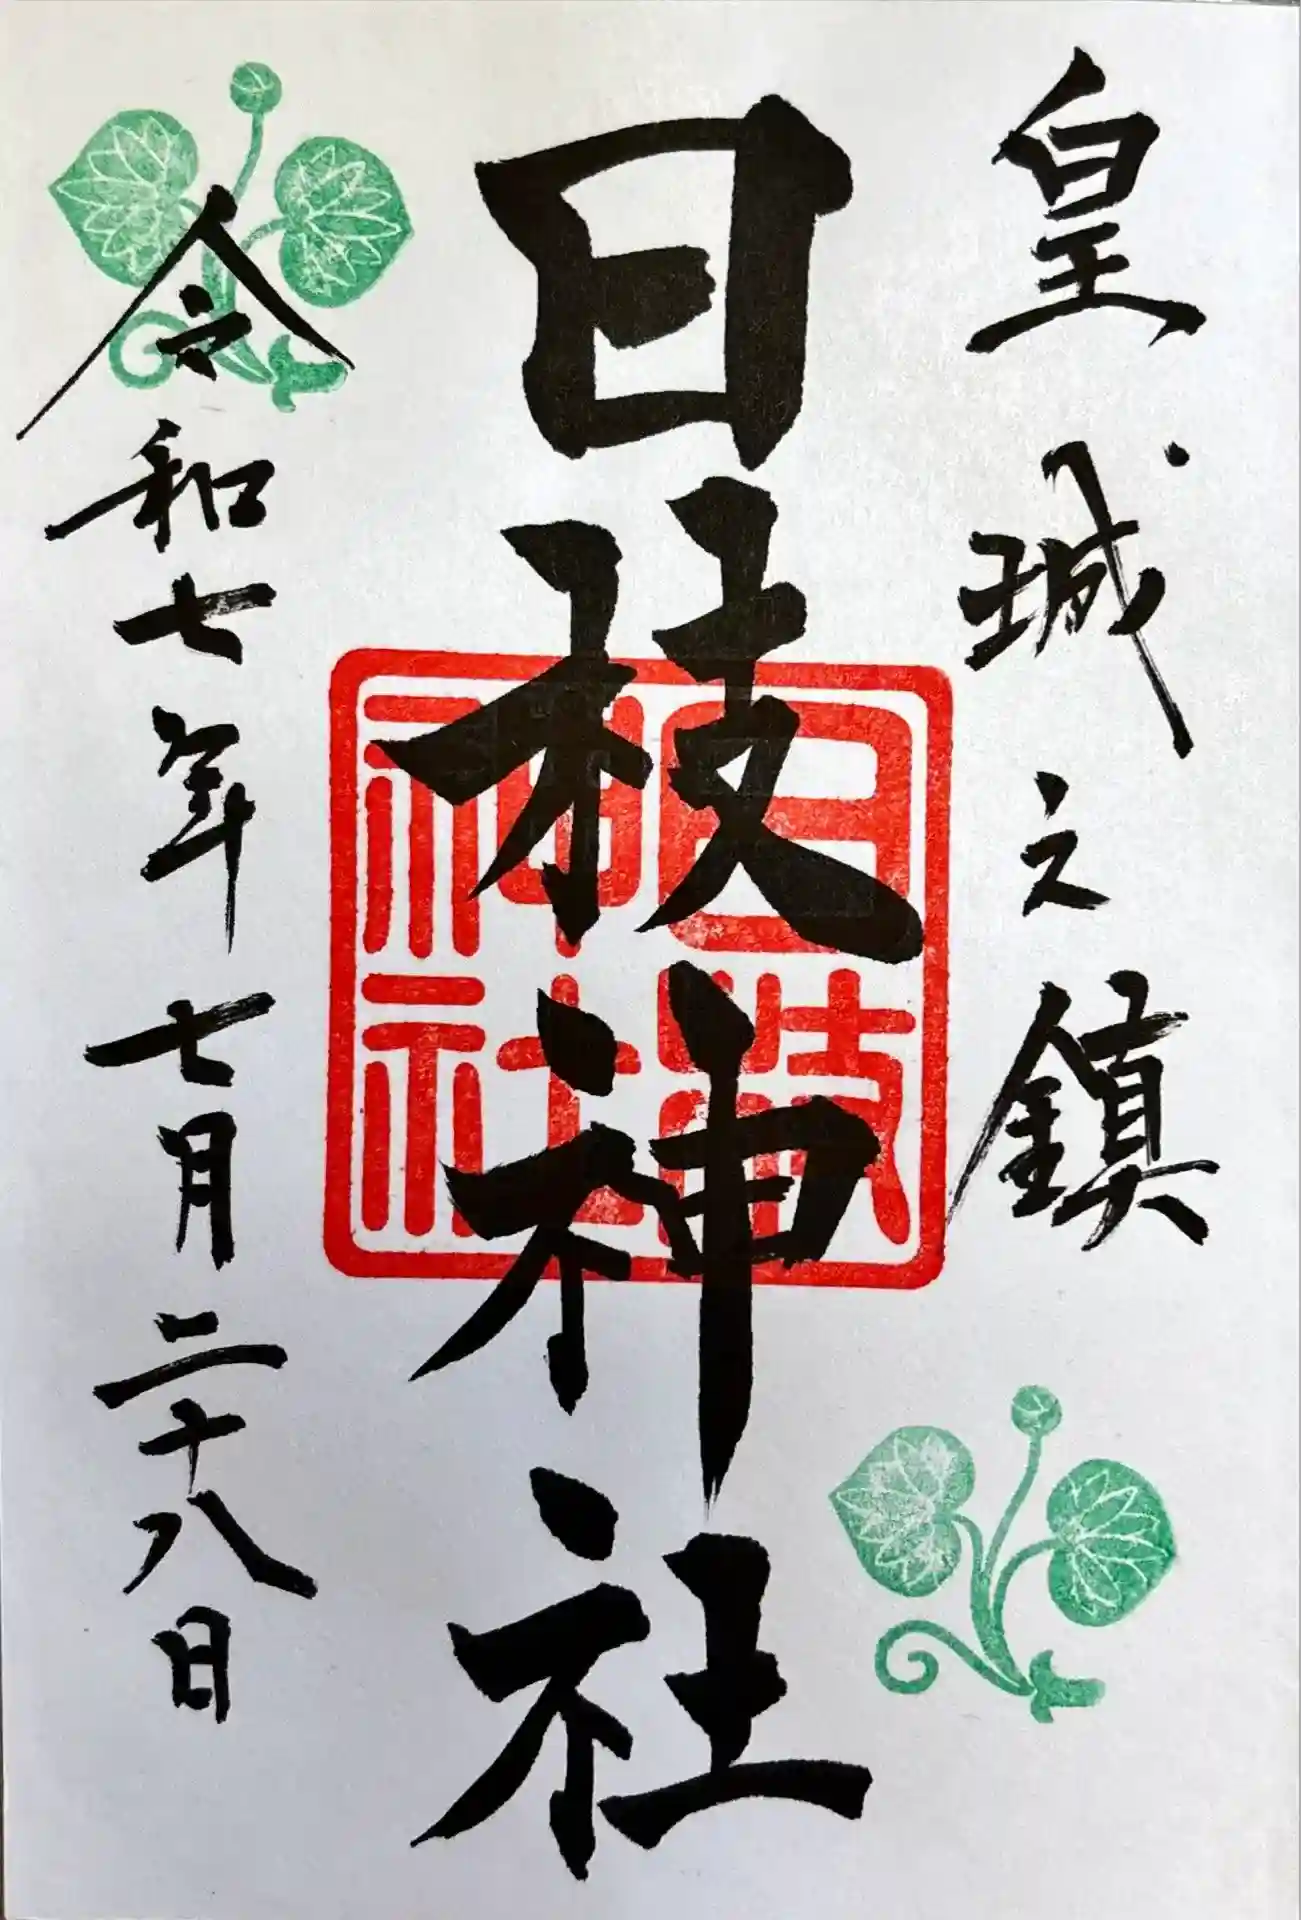 皇城之鎮
日枝神社
日枝神社
令和七年七月二十八日